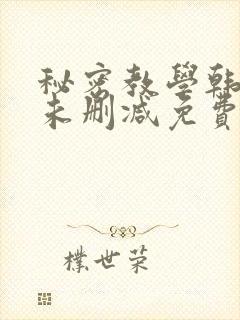 秘密教學韩
未删减免費
樸世荣